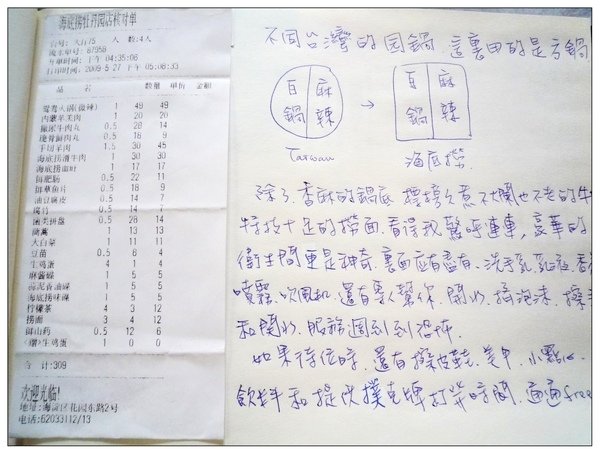 海底捞牡丹园店核对单
台号:大台75 人数:4人
流水单号:87958
开单时间:下午 04:35:06
打印时间:2009-5-27 下午 05:08:33
品 名 数量 单价 金额
鸳鸯火锅(微辣) 1 49 49
内蒙羊羔肉 1 20 20
撒尿牛肉丸 0.5 28 14
脆骨 0.5 18 9
手切羊肉 1.5 30 45
海底捞滑牛肉 1 30 30
海底捞血旺 1 17 17
0.5 22 11
0.5 18 9
油豆腐皮 0.5 14 7
腐竹 0.5 14 7
菌类拼盘 0.5 28 14
1 13 13
大白菜 1 11 11
豆苗 0.5 8 4
生鸡蛋 4 1 4
麻酱碟 1 5 5
1 5 5
海底捞味碟 1 5 5
柠檬茶 4 3 12
捞面 3 4 12
御山药 0.5 12 6
(赠)生鸡蛋 1 0 0
合计:309
欢迎光临!
地址:海淀区花园东路2号
电话:62033112/13
不同台灣的圓鍋 這裏用的是方鍋
百鍋 麻辣 → 百鍋 麻辣
Taiwan 海底撈
除了香麻的鍋底 標榜久煮不爛也不老的牛
特技十足的撈面.看得我驚呼連連,豪華的
衛生間更是神奇.裏面應有盡有.洗手乳.乳液.香
噴霧.吹風机.還有專人幫你.開水.擠泡沫.擦手
和開水.服務週到到得体.
如果待位時.還有擦皮鞋.美甲.小點心
飲料和提供撲克牌打發時間.通通free